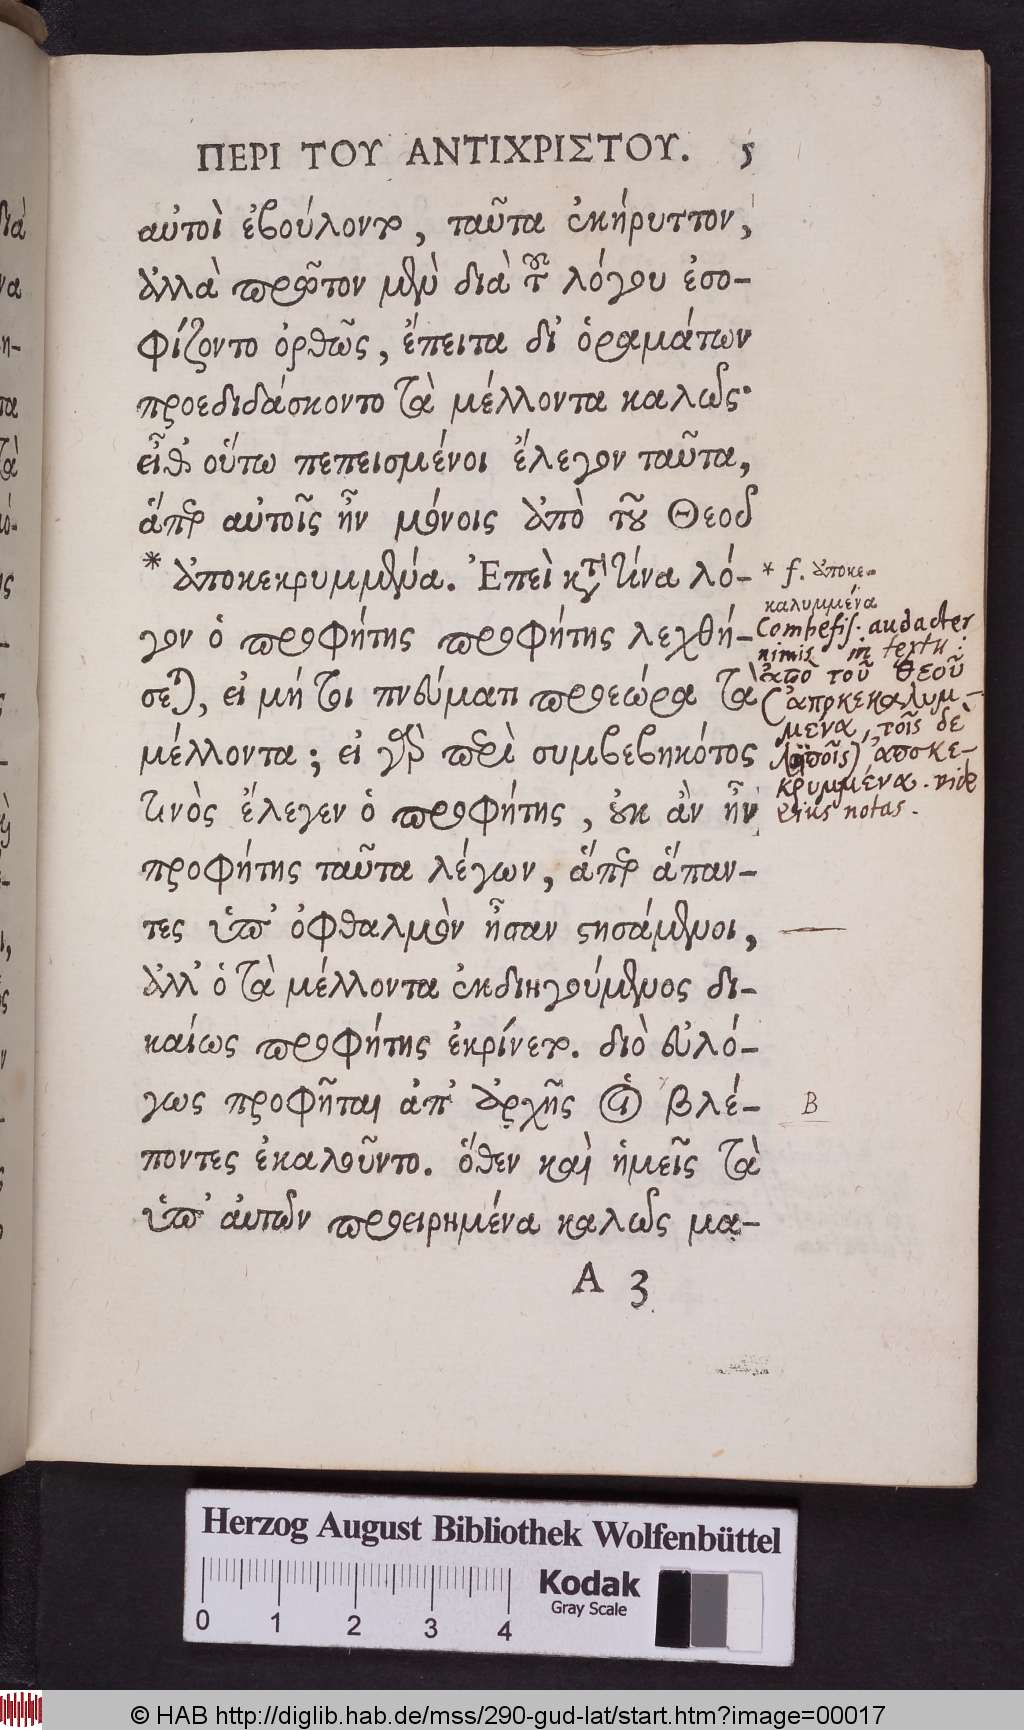 ΠΕΡΙ ΤΟΥ ΑΝΤΙΧΡΙΣΤΟΥ. 5
αὐτοὶ ἐβούλοντο, ταῦτα ἐκήρυττον,
ἀλλὰ πρῶτον μὲν διὰ τοῦ λόγου ἐσο-
φίζοντο ὀρθῶς, ἔπειτα δι' ὁραμάτων
προεδιδάσκοντο τὰ μέλλοντα καλῶς·
εἶθ' οὕτω πεπεισμένοι ἔλεγον ταῦτα,
ἅπερ αὐτοῖς ἦν μόνοις ἀπὸ τοῦ Θεοῦ
* ἀποκεκρυμμένα. Ἐπεὶ κατὰ τίνα λό-
γον ὁ προφήτης προφήτης λεχθή-
σεται, εἰ μή τοι πνεύματι προεώρα τὰ
μέλλοντα; εἰ γὰρ περὶ συμβεβηκότος
τινὸς ἔλεγεν ὁ προφήτης, οὐκ ἂν ἦν
προφήτης ταῦτα λέγων, ἅπερ ἅπαν-
τες ὑπ' ὀφθαλμὸν ἦσαν στησάμενοι,
ἀλλ' ὁ τὰ μέλλοντα ἐκδιηγούμενος δι-
καίως προφήτης ἐκρίνετο. διὸ εὐλό-
γως προφῆται ἀπ' ἀρχῆς οἱ βλέ-
ποντες ἐκαλοῦντο. ὅθεν καὶ ἡμεῖς τὰ
ὑπ' αὐτῶν προειρημένα καλῶς μα-
A 3
* f. ἀποκε-
καλυμμένα
Combefis. audacter
nimis in textu:
ἀπὸ τοῦ θεοῦ
(ἀποκεκαλυμ-
μένα, τοῖς δὲ
λοιποῖς) ἀποκε-
κρυμμένα. vide
eius notas.
B
Herzog August Bibliothek Wolfenbüttel
Kodak
Gray Scale
0 1 2 3 4
© HAB http://diglib.hab.de/mss/290-gud-lat/start.htm?image=00017